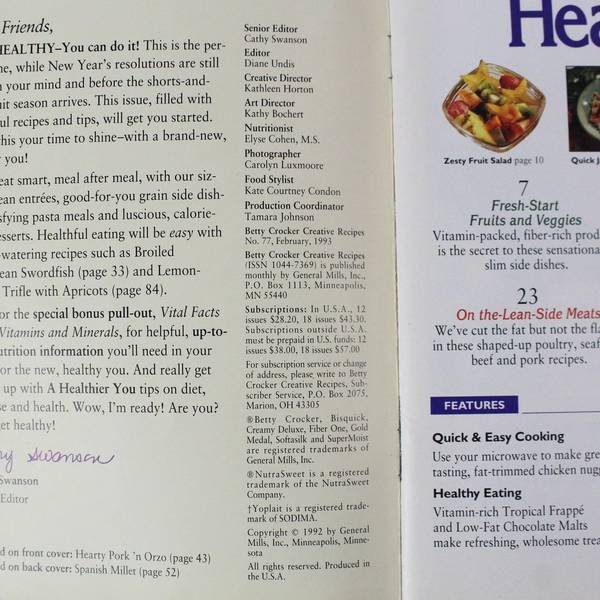 Friends,
HEALTHY–You can do it! This is the per-
while New Year's resolutions are still
your mind and before the shorts-and-
season arrives. This issue, filled with
recipes and tips, will get you started.
this your time to shine–with a brand-new,
you!
eat smart, meal after meal, with our siz-
entrées, good-for-you grain side dish-
pasta meals and luscious, calorie-
Healthful eating will be easy with
-watering recipes such as Broiled
Swordfish (page 33) and Lemon-
Trifle with Apricots (page 84).
or the special bonus pull-out, Vital Facts
Vitamins and Minerals, for helpful, up-to-
information you'll need in your
or the new, healthy you. And really get
up with A Healthier You tips on diet,
and health. Wow, I'm ready! Are you?
get healthy!
Swanson
Swanson
Editor
on front cover: Hearty Pork 'n Orzo (page 43)
on back cover: Spanish Millet (page 52)
Senior Editor
Cathy Swanson
Editor
Diane Undis
Creative Director
Kathleen Horton
Art Director
Kathy Bochert
Nutritionist
Elyse Cohen, M.S.
Photographer
Carolyn Luxmoore
Food Stylist
Kate Courtney Condon
Production Coordinator
Tamara Johnson
Betty Crocker Creative Recipes
No. 77, February, 1993
Betty Crocker Creative Recipes
(ISSN 1044-7369) is published
monthly by General Mills, Inc.,
P.O. Box 1113, Minneapolis,
MN 55440
Subscriptions: In U.S.A., 12
issues $28.20, 18 issues $43.30.
Subscriptions outside U.S.A.
must be prepaid in U.S. funds: 12
issues $38.00, 18 issues $57.00
For subscription service or change
of address, please write to Betty
Crocker Creative Recipes, Sub-
scriber Service, P.O. Box 2075,
Marion, OH 43305
®Betty Crocker, Bisquick,
Creamy Deluxe, Fiber One, Gold
Medal, Softasilk and SuperMoist
are registered trademarks of
General Mills, Inc.
®NutraSweet is a registered
trademark of the NutraSweet
Company.
†Yoplait is a registered trade-
mark of SODIMA.
Copyright © 1992 by General
Mills, Inc., Minneapolis, Minne-
sota
All rights reserved. Produced in
the U.S.A.
Hea
Zesty Fruit Salad page 10
Quick
7
Fresh-Start
Fruits and Veggies
Vitamin-packed, fiber-rich prod
is the secret to these sensationa
slim side dishes.
23
On the-Lean-Side Meats
We've cut the fat but not the fla
in these shaped-up poultry, seaf
beef and pork recipes.
FEATURES
Quick & Easy Cooking
Use your microwave to make gre
tasting, fat-trimmed chicken nugg
Healthy Eating
Vitamin-rich Tropical Frappé
and Low-Fat Chocolate Malts
make refreshing, wholesome trea